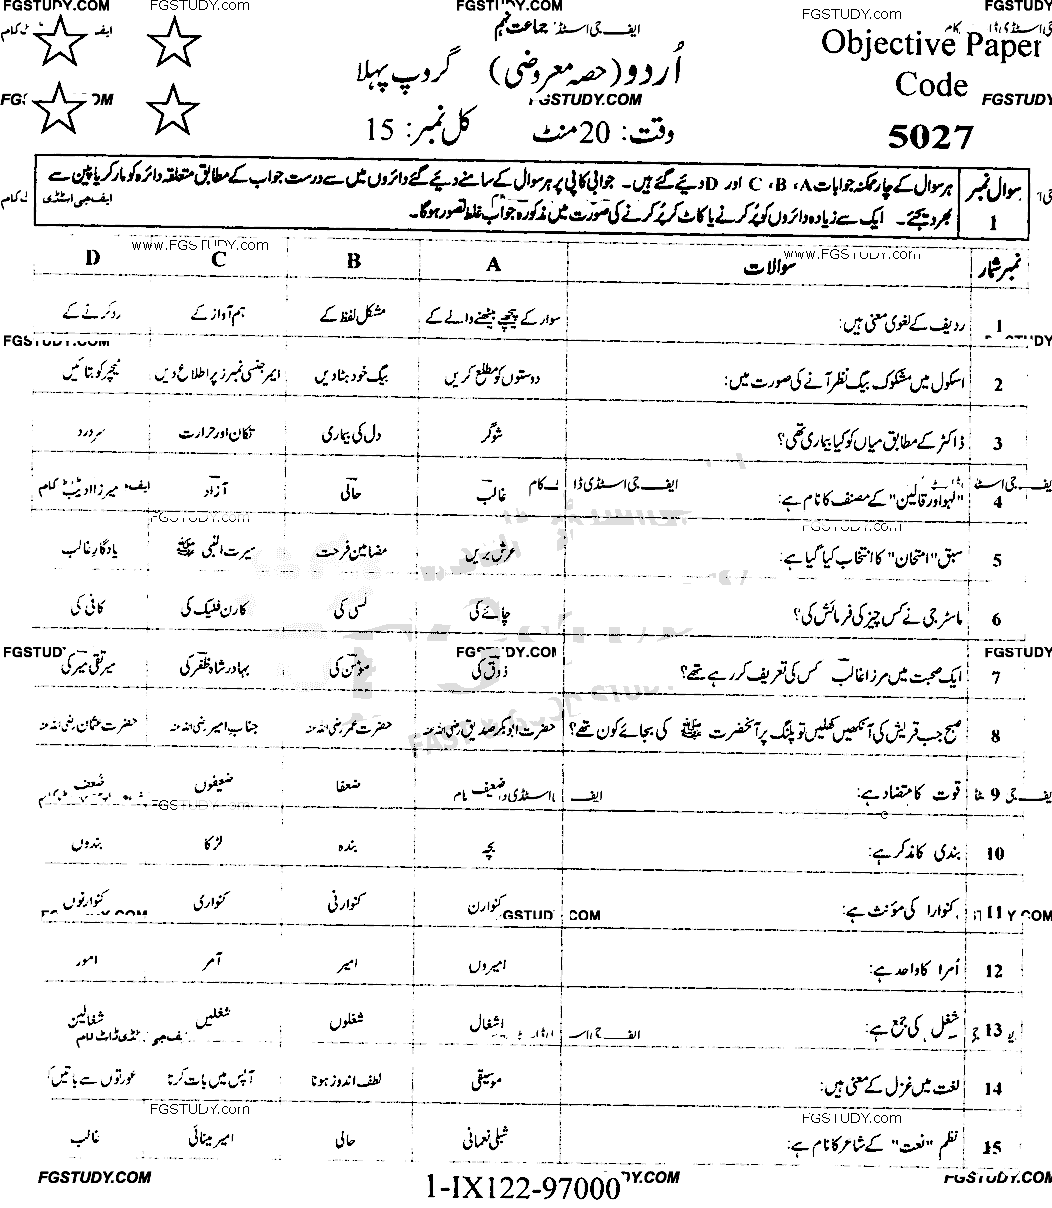 FGSTUDY.COM FGSTUDY.com FGSTUDY.COM FGSTUDY.com FGSTUDY
ایف جی اسٹڈی جماعت نہم
Objective Paper
Code
5027
اُردو (حصہ معروضی) گروپ پہلا
FGSTUDY.COM
وقت: 20 منٹ کل نمبر: 15
سوال نمبر 1
ہر سوال کے چار ممکنہ جوابات A ، B ، C اور D دیئے گئے ہیں۔ جوابی کاپی پر ہر سوال کے سامنے دیئے گئے دائروں میں سے درست جواب کے مطابق متعلقہ دائرہ کو مارکر یا پین سے
بھر دیجئے۔ ایک سے زیادہ دائروں کو پُر کرنے یا کاٹ کر پُر کرنے کی صورت میں مذکورہ جواب غلط تصور ہوگا۔
www.FGSTUDY.com www.FGSTUDY.com
نمبر شمار سوالات A B C D
1 ردیف کے لغوی معنی ہیں: سوار کے پیچھے بیٹھنے والے کے مشکل لفظ کے ہم آواز کے رد کرنے کے
FGSTUDY.COM
2 اسکول میں مشکوک بیگ نظر آنے کی صورت میں: دوستوں کو مطلع کریں بیگ خود ہٹا دیں ایمرجنسی نمبرز پر اطلاع دیں ٹیچر کو بتائیں
3 ڈاکٹر کے مطابق میاں کو کیا بیماری تھی؟ شوگر دل کی بیماری تکان اور حرارت سر درد
4 "لہو اور قالین" کے مصنف کا نام ہے: غالب حالی آزاد میرزا ادیب
FGSTUDY.com FGSTUDY.com
5 سبق "امتحان" کا انتخاب کیا گیا ہے: عرش بریں مضامین فرحت سیرت النبی ﷺ یادگار غالب
6 ماسٹر جی نے کس چیز کی فرمائش کی؟ چائے کی لسی کی کارن فلیک کی کافی کی
FGSTUDY FGSTUDY.COM FGSTUDY
7 ایک صحبت میں مرزا غالب کس کی تعریف کر رہے تھے؟ ذوق کی مومن کی بہادر شاہ ظفر کی میر تقی میر کی
8 صبح جب قریش کی آنکھیں کھلیں تو پلنگ پر آنحضرت ﷺ کی بجائے کون تھے؟ حضرت ابوبکر صدیق رضی اللہ عنہ حضرت عمر رضی اللہ عنہ جناب امیر رضی اللہ عنہ حضرت عثمان رضی اللہ عنہ
9 قوت کا متضاد ہے: ضعیف ضعفا ضعیفوں ضُعف
FGSTUDY.com
10 بندی کا مذکر ہے: بچہ بندہ لڑکا بندوں
11 کنوارا کی مؤنث ہے: کنوارن کنوارنی کنواری کنوارنوں
12 اُمرا کا واحد ہے: امیروں امیر آمر امور
13 شغل کی جمع ہے: اشغال شغلوں شغلیں شغالین
14 لغت میں غزل کے معنی ہیں: موسیقی لطف اندوز ہونا آپس میں بات کرنا عورتوں سے باتیں
FGSTUDY.com FGSTUDY.com
15 نظم "نعت" کے شاعر کا نام ہے: شبلی نعمانی حالی امیر مینائی غالب
FGSTUDY.COM 1-IX122-97000 FGSTUDY.COM